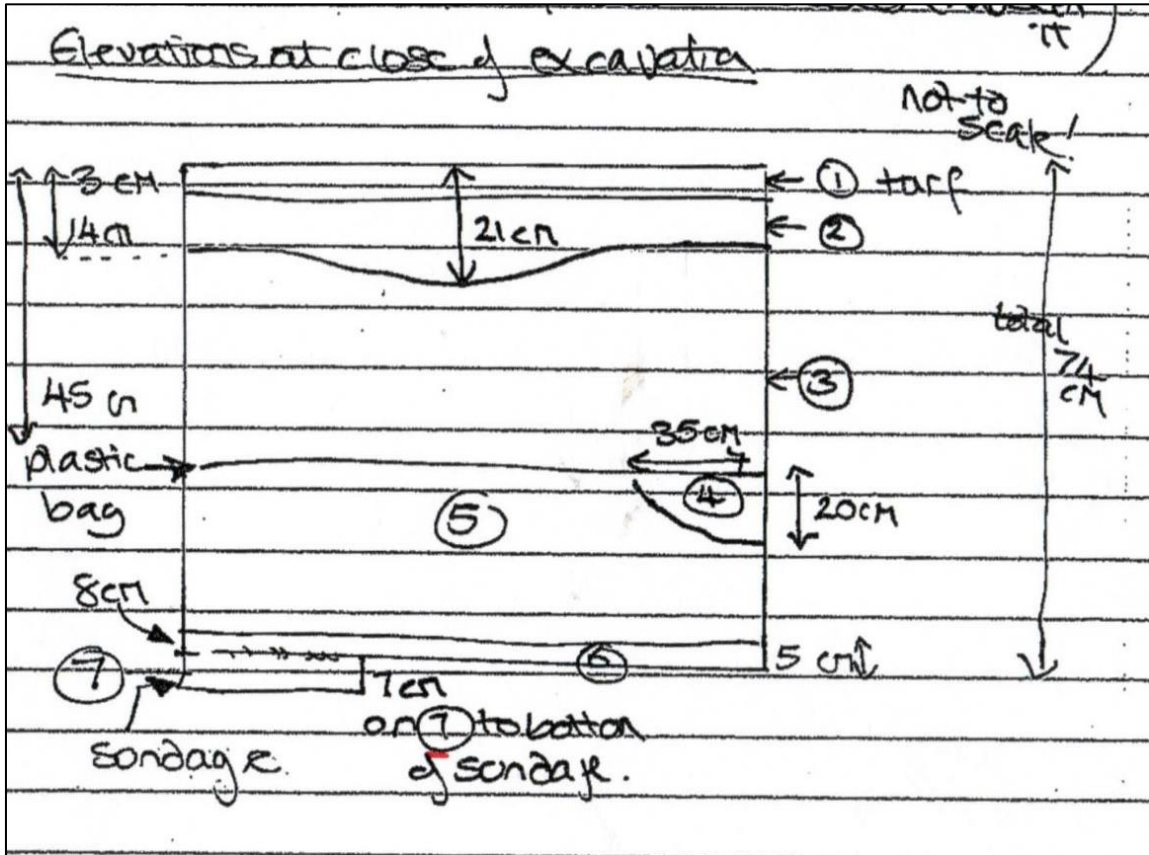 it
Elevations at close of excavation
not to
scale!
3 cm
① turf
14cm
21cm
②
total
74
cm
③
45 cm
35cm
plastic
bag
④
⑤
20cm
8cm
⑥
5 cm
⑦
7cm
on ⑦ to bottom
sondage.
of sondage.